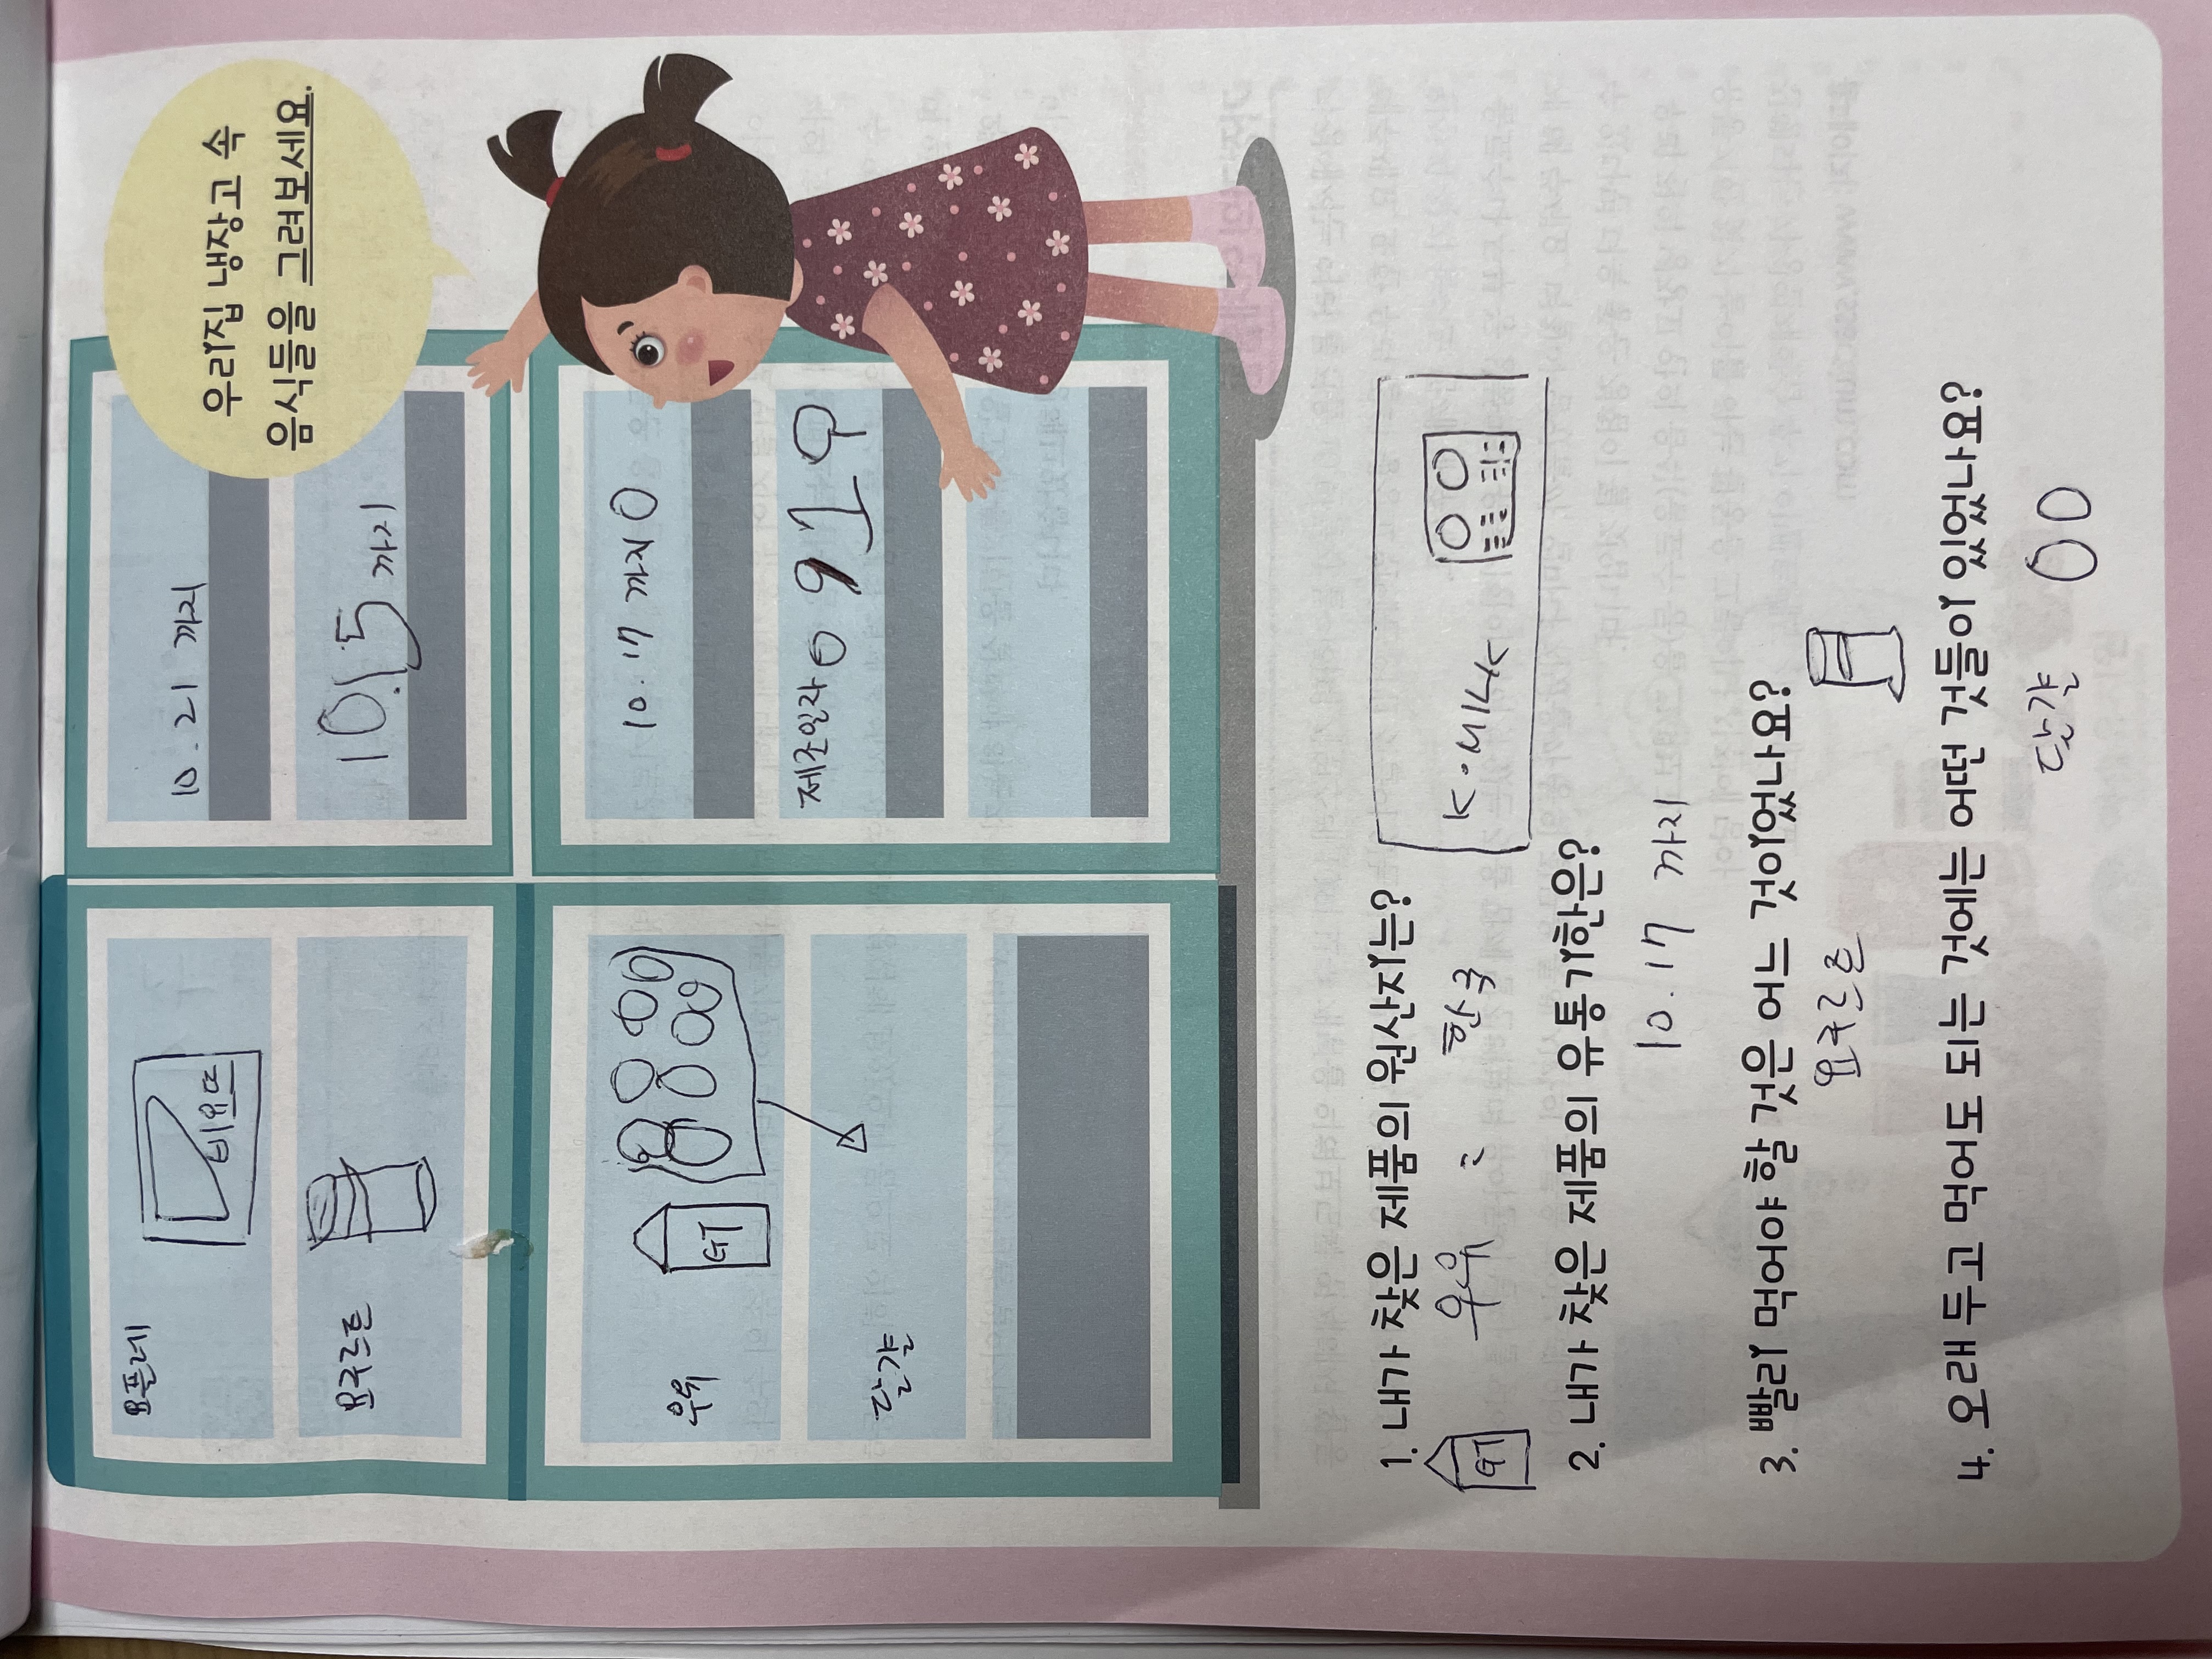 우리집 냉장고 속
음식들을 그려보세요.
요플레
비요뜨
10.21 까지
요구르트
10.15 까지
우유
GT
10.17 까지
달걀
제조일자 0919
1. 내가 찾은 제품의 원산지는?
GT
우유 : 한국
K·MILK
2. 내가 찾은 제품의 유통기한은?
10.17 까지
3. 빨리 먹어야 할 것은 어느 것이었나요?
요구르트
4. 오래 두고 먹어도 되는 것에는 어떤 것들이 있었나요?
달걀